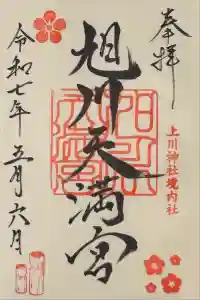 奉拝
上川神社境内社
旭川天満宮
令和七年五月六日